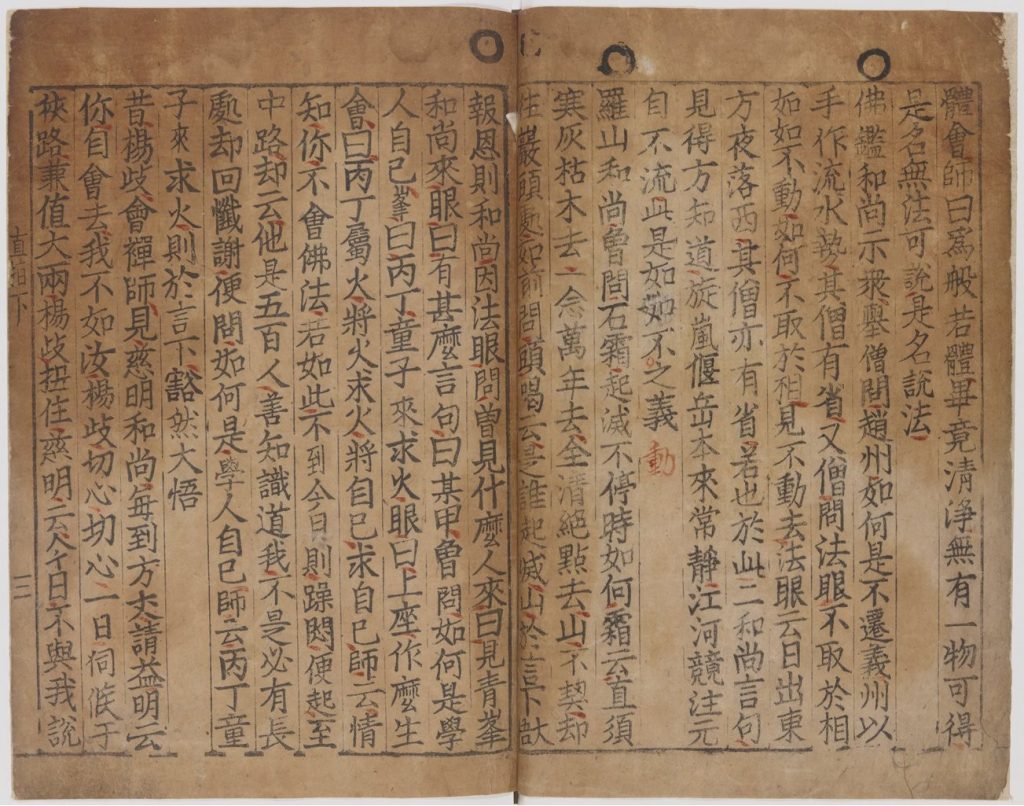 體會師曰爲般若體畢竟清浄無有一物可得
是名無法可說是名說法
佛鑑和尚示衆舉僧問趙州如何是不遷義州以
手作流水勢其僧有省又僧問法眼不取於相
如如不動如何不取於相見不動去法眼云日出東
方夜落西其僧亦有省若也於此二和尚言句
見得方知道旋嵐偃岳本來常靜江河競注元
自不流此是如如不之義
動
羅山和尚曾問石霜起滅不停時如何霜云直須
寒灰枯木去一念萬年去全清絕點去山不契却
往巖頭處如前問頭喝云是誰起滅山於言下
報恩則和尚因法眼問曾見什麼人來曰見青峯
和尚來眼曰有甚麼言句曰某甲曾問如何是學
人自己峯曰丙丁童子來求火眼曰上座作麼生
會曰丙丁屬火將火求火將自己求自己師云情
知你不會佛法若如此不到今日則躁悶便起至
中路却云他是五百人善知識道我不是必有長
處却回懺謝便問如何是學人自己師云丙丁童
子來求火則於言下豁然大悟
昔楊歧會禪師見慈明和尚每到方丈請益明云
你自會去我不如汝楊歧切心切心一日伺候于
狹路兼值大雨楊歧扭住慈明云今日不與我說
直指下
三